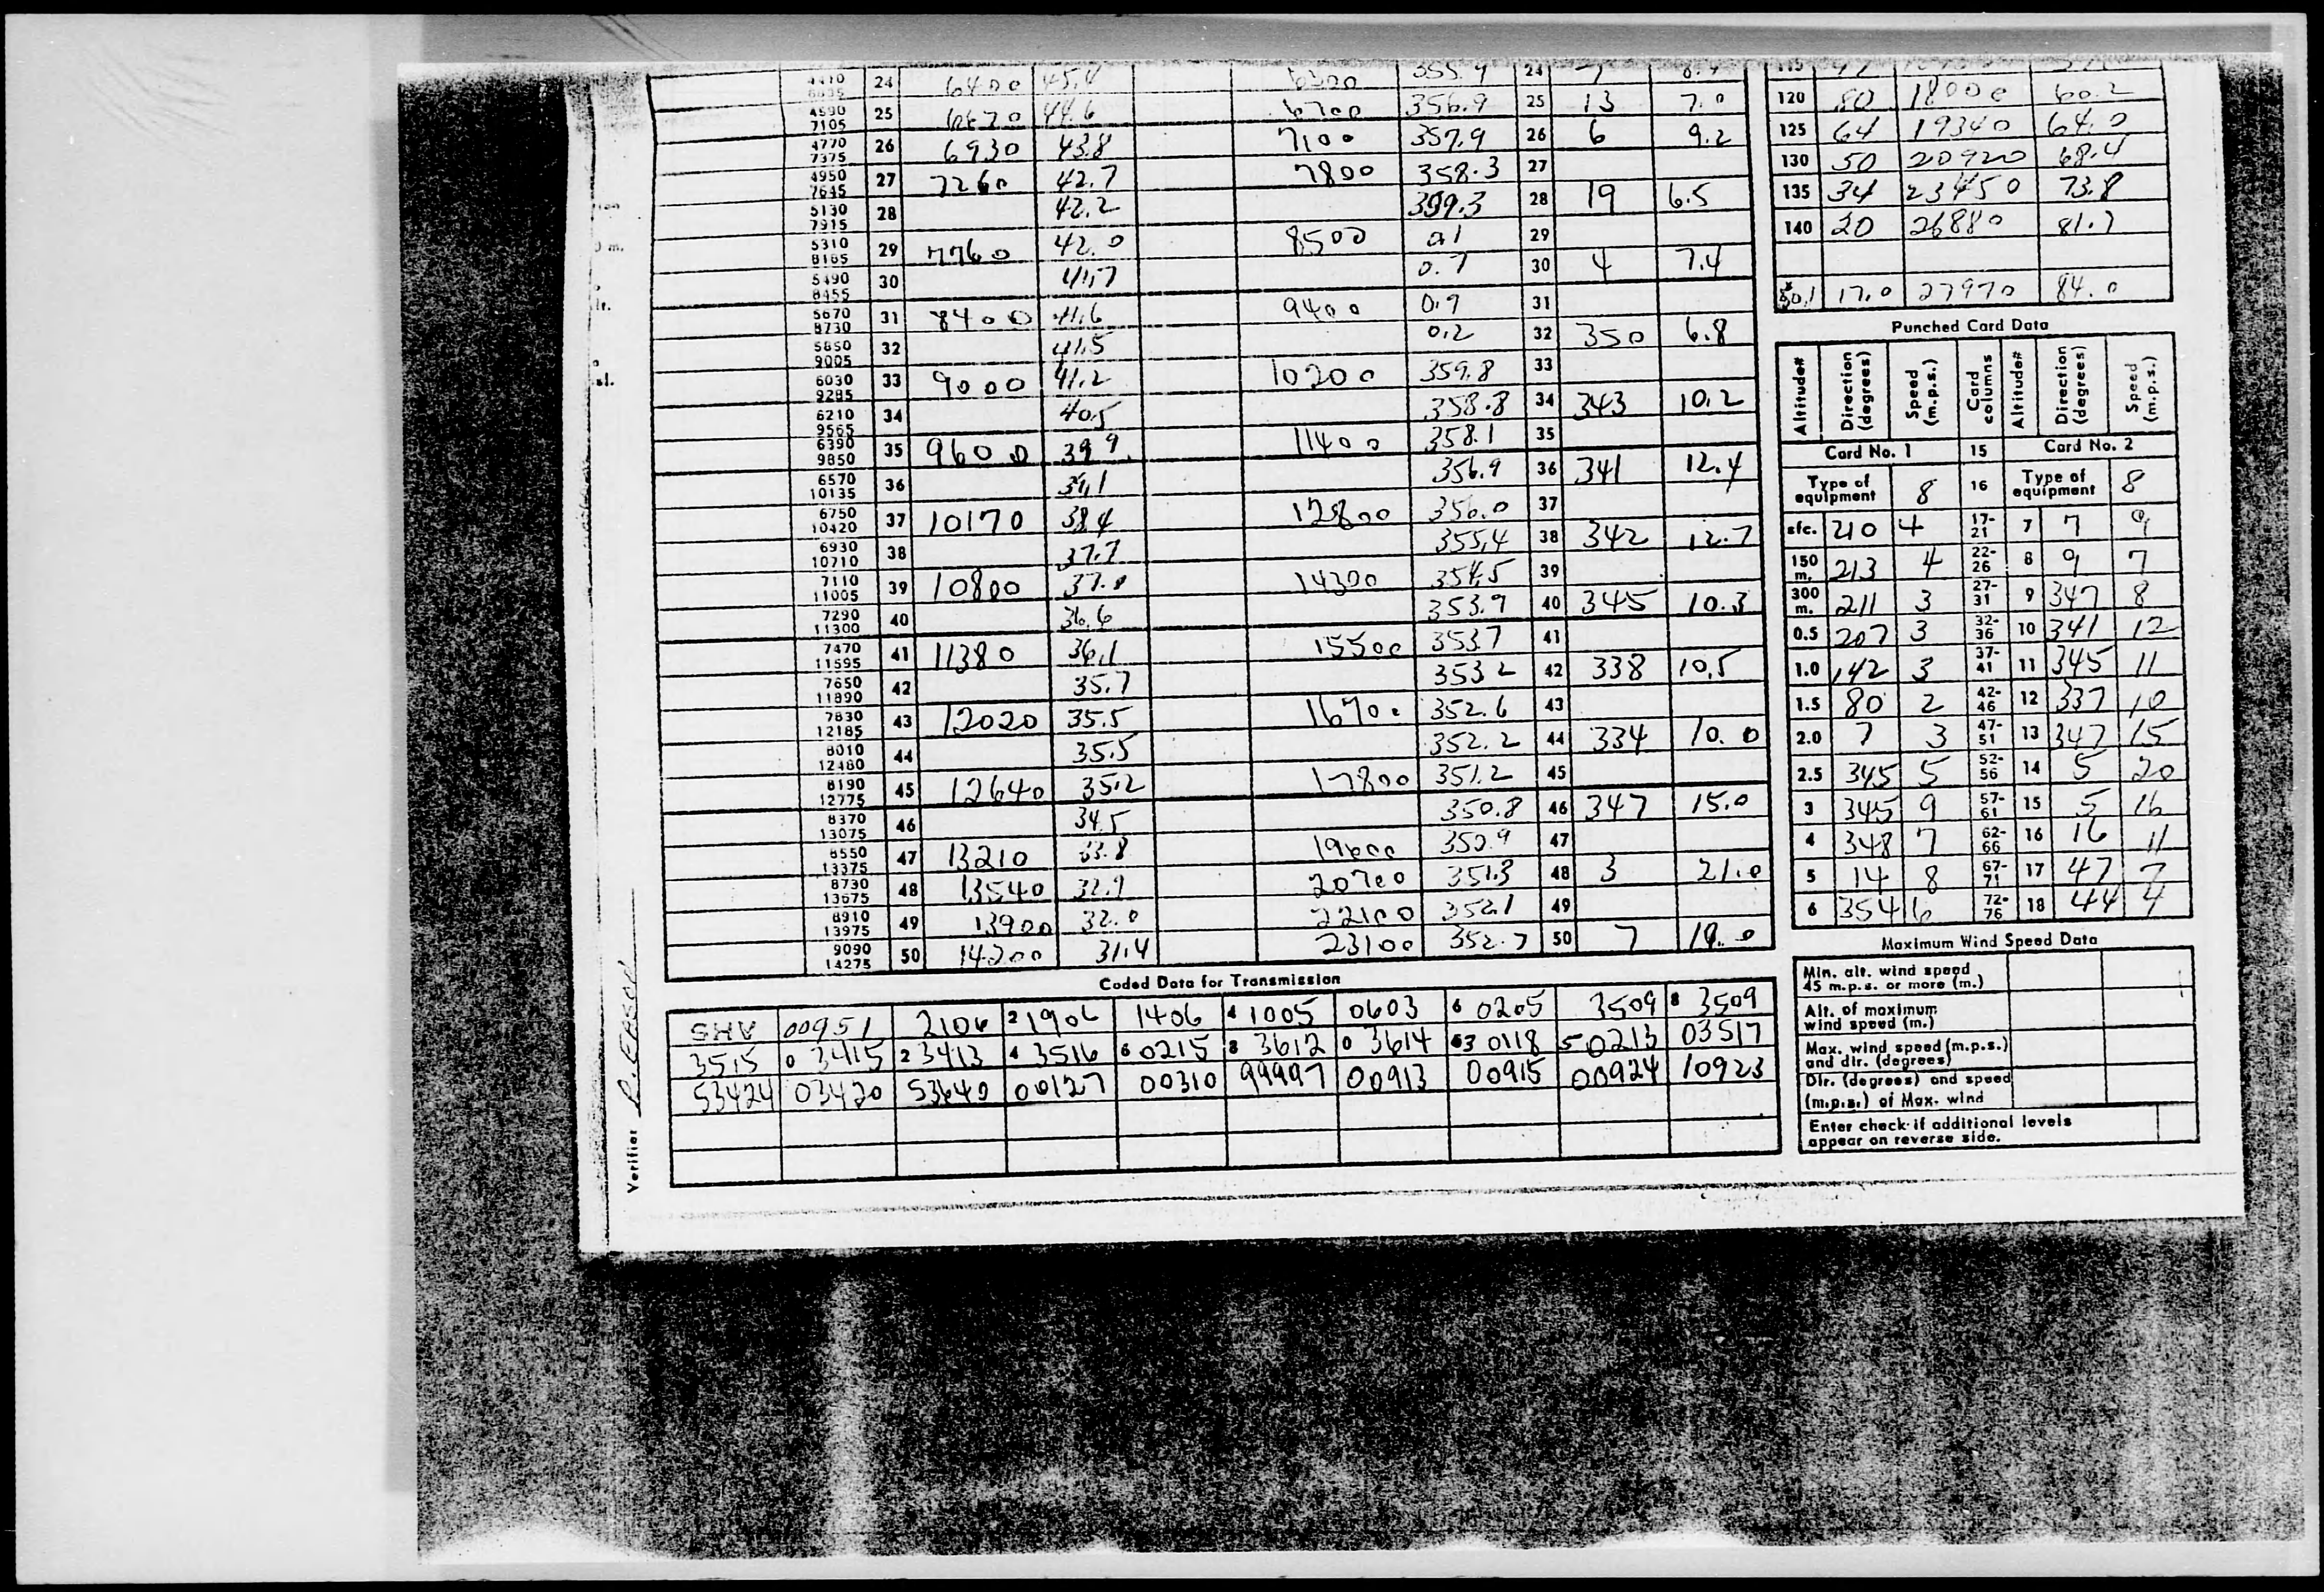 4410 24 6400 45.4 6300 355.9 24 7 8.4
6835
4590 25 6670 44.6 6700 356.9 25 13 7.0
7105
4770 26 6930 43.8 7100 357.9 26 6 9.2
7375
4950 27 7260 42.7 7800 358.3 27
7645
5130 28 42.2 359.3 28 19 6.5
7915
5310 29 7760 42.0 8500 0.1 29
8185
5490 30 41.7 0.7 30 4 7.4
8455
5670 31 8400 41.6 9400 0.9 31
8730
5850 32 41.5 0.2 32 350 6.8
9005
6030 33 9000 41.2 10200 359.8 33
9285
6210 34 40.5 358.8 34 343 10.2
9565
6390 35 9600 39.9 11400 358.1 35
9850
6570 36 39.1 356.9 36 341 12.4
10135
6750 37 10170 38.4 12800 356.0 37
10420
6930 38 37.7 355.4 38 342 12.7
10710
7110 39 10800 37.0 14300 354.5 39
11005
7290 40 36.6 353.9 40 345 10.3
11300
7470 41 11380 36.1 15500 353.7 41
11595
7650 42 35.7 353.2 42 338 10.5
11890
7830 43 12020 35.5 16700 352.6 43
12185
8010 44 35.5 352.2 44 334 10.0
12480
8190 45 12640 35.2 17800 351.2 45
12775
8370 46 34.5 350.8 46 347 15.0
13075
8550 47 13210 33.8 19600 350.9 47
13375
8730 48 13540 32.9 20700 351.3 48 3 21.0
13675
8910 49 13900 32.0 22100 352.1 49
13975
9090 50 14200 31.4 23100 352.7 50 7 19.0
14275
Coded Data for Transmission
SHV 00951 2106 2 1906 1406 4 1005 0603 6 0205 3509 8 3509
3515 0 3415 2 3413 4 3516 6 0215 8 3612 0 3614 63 0118 50213 03517
53424 03420 53640 00127 00310 99997 00913 00915 00924 10923
Verifier
115
120 80 18000 60.2
125 64 19340 64.0
130 50 20920 68.4
135 34 23450 73.8
140 20 26880 81.7
17.0 27970 84.0
Punched Card Data
Altitude# Direction (degrees) Speed (m.p.s.) Card columns Altitude# Direction (degrees) Speed (m.p.s.)
Card No. 1 15 Card No. 2
Type of equipment 8 16 Type of equipment 8
sfc. 210 4 17-21 7 7 9
150 m. 213 4 22-26 8 9 7
300 m. 211 3 27-31 9 347 8
0.5 207 3 32-36 10 341 12
1.0 142 3 37-41 11 345 11
1.5 80 2 42-46 12 337 10
2.0 7 3 47-51 13 347 15
2.5 345 5 52-56 14 5 20
3 345 9 57-61 15 5 16
4 348 7 62-66 16 16 11
5 14 8 67-71 17 47 7
6 354 6 72-76 18 44 4
Maximum Wind Speed Data
Min. alt. wind speed
45 m.p.s. or more (m.)
Alt. of maximum
wind speed (m.)
Max. wind speed (m.p.s.)
and dir. (degrees)
Dir. (degrees) and speed
(m.p.s.) of Max. wind
Enter check if additional levels
appear on reverse side.